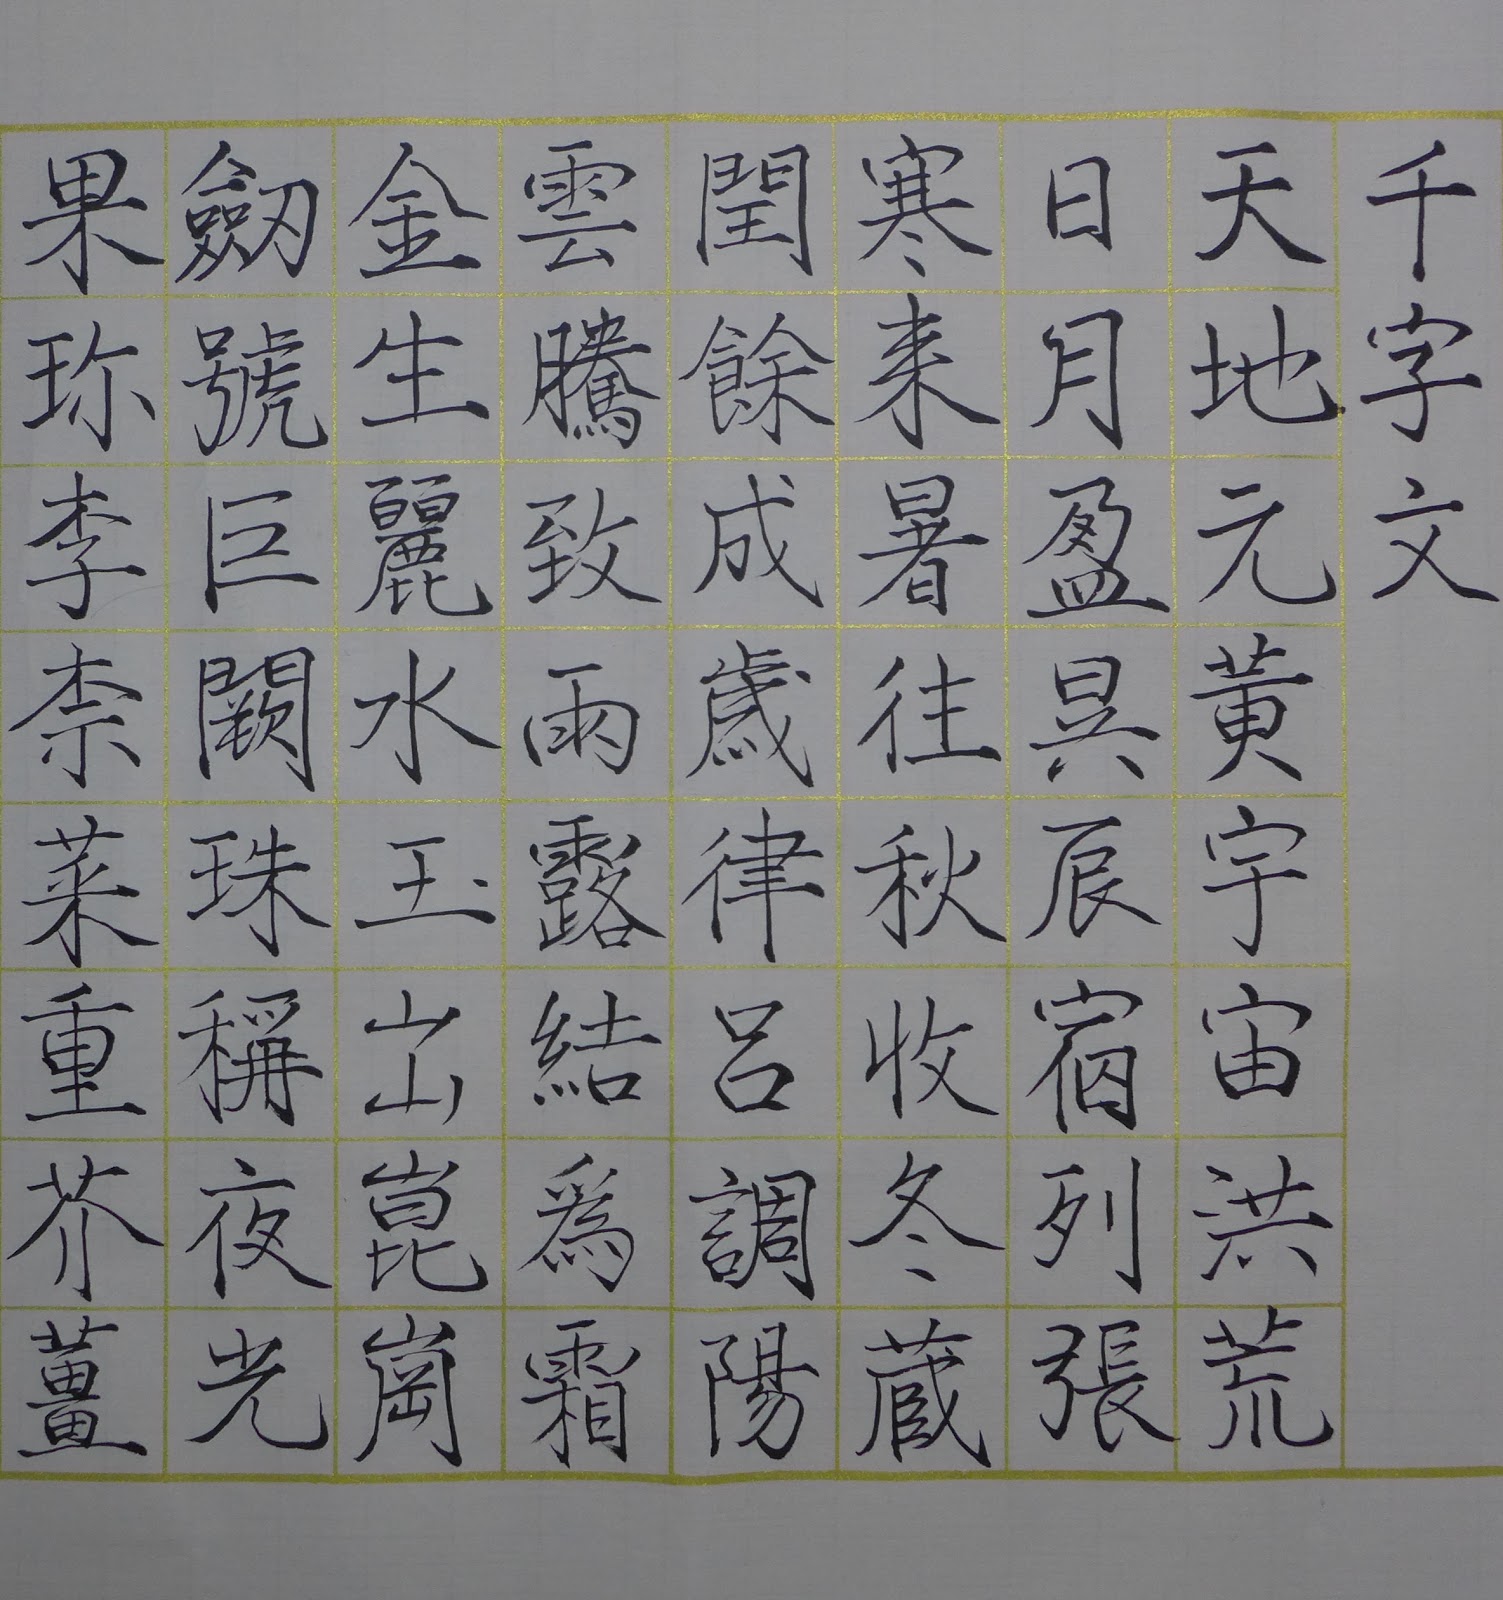 千字文
天地元黃宇宙洪荒
日月盈昃辰宿列張
寒来暑往秋收冬蔵
閏餘成歲律呂調陽
雲騰致雨露結爲霜
金生麗水玉出崑崗
劔號巨闕珠稱夜光
果珎李柰菜重芥薑